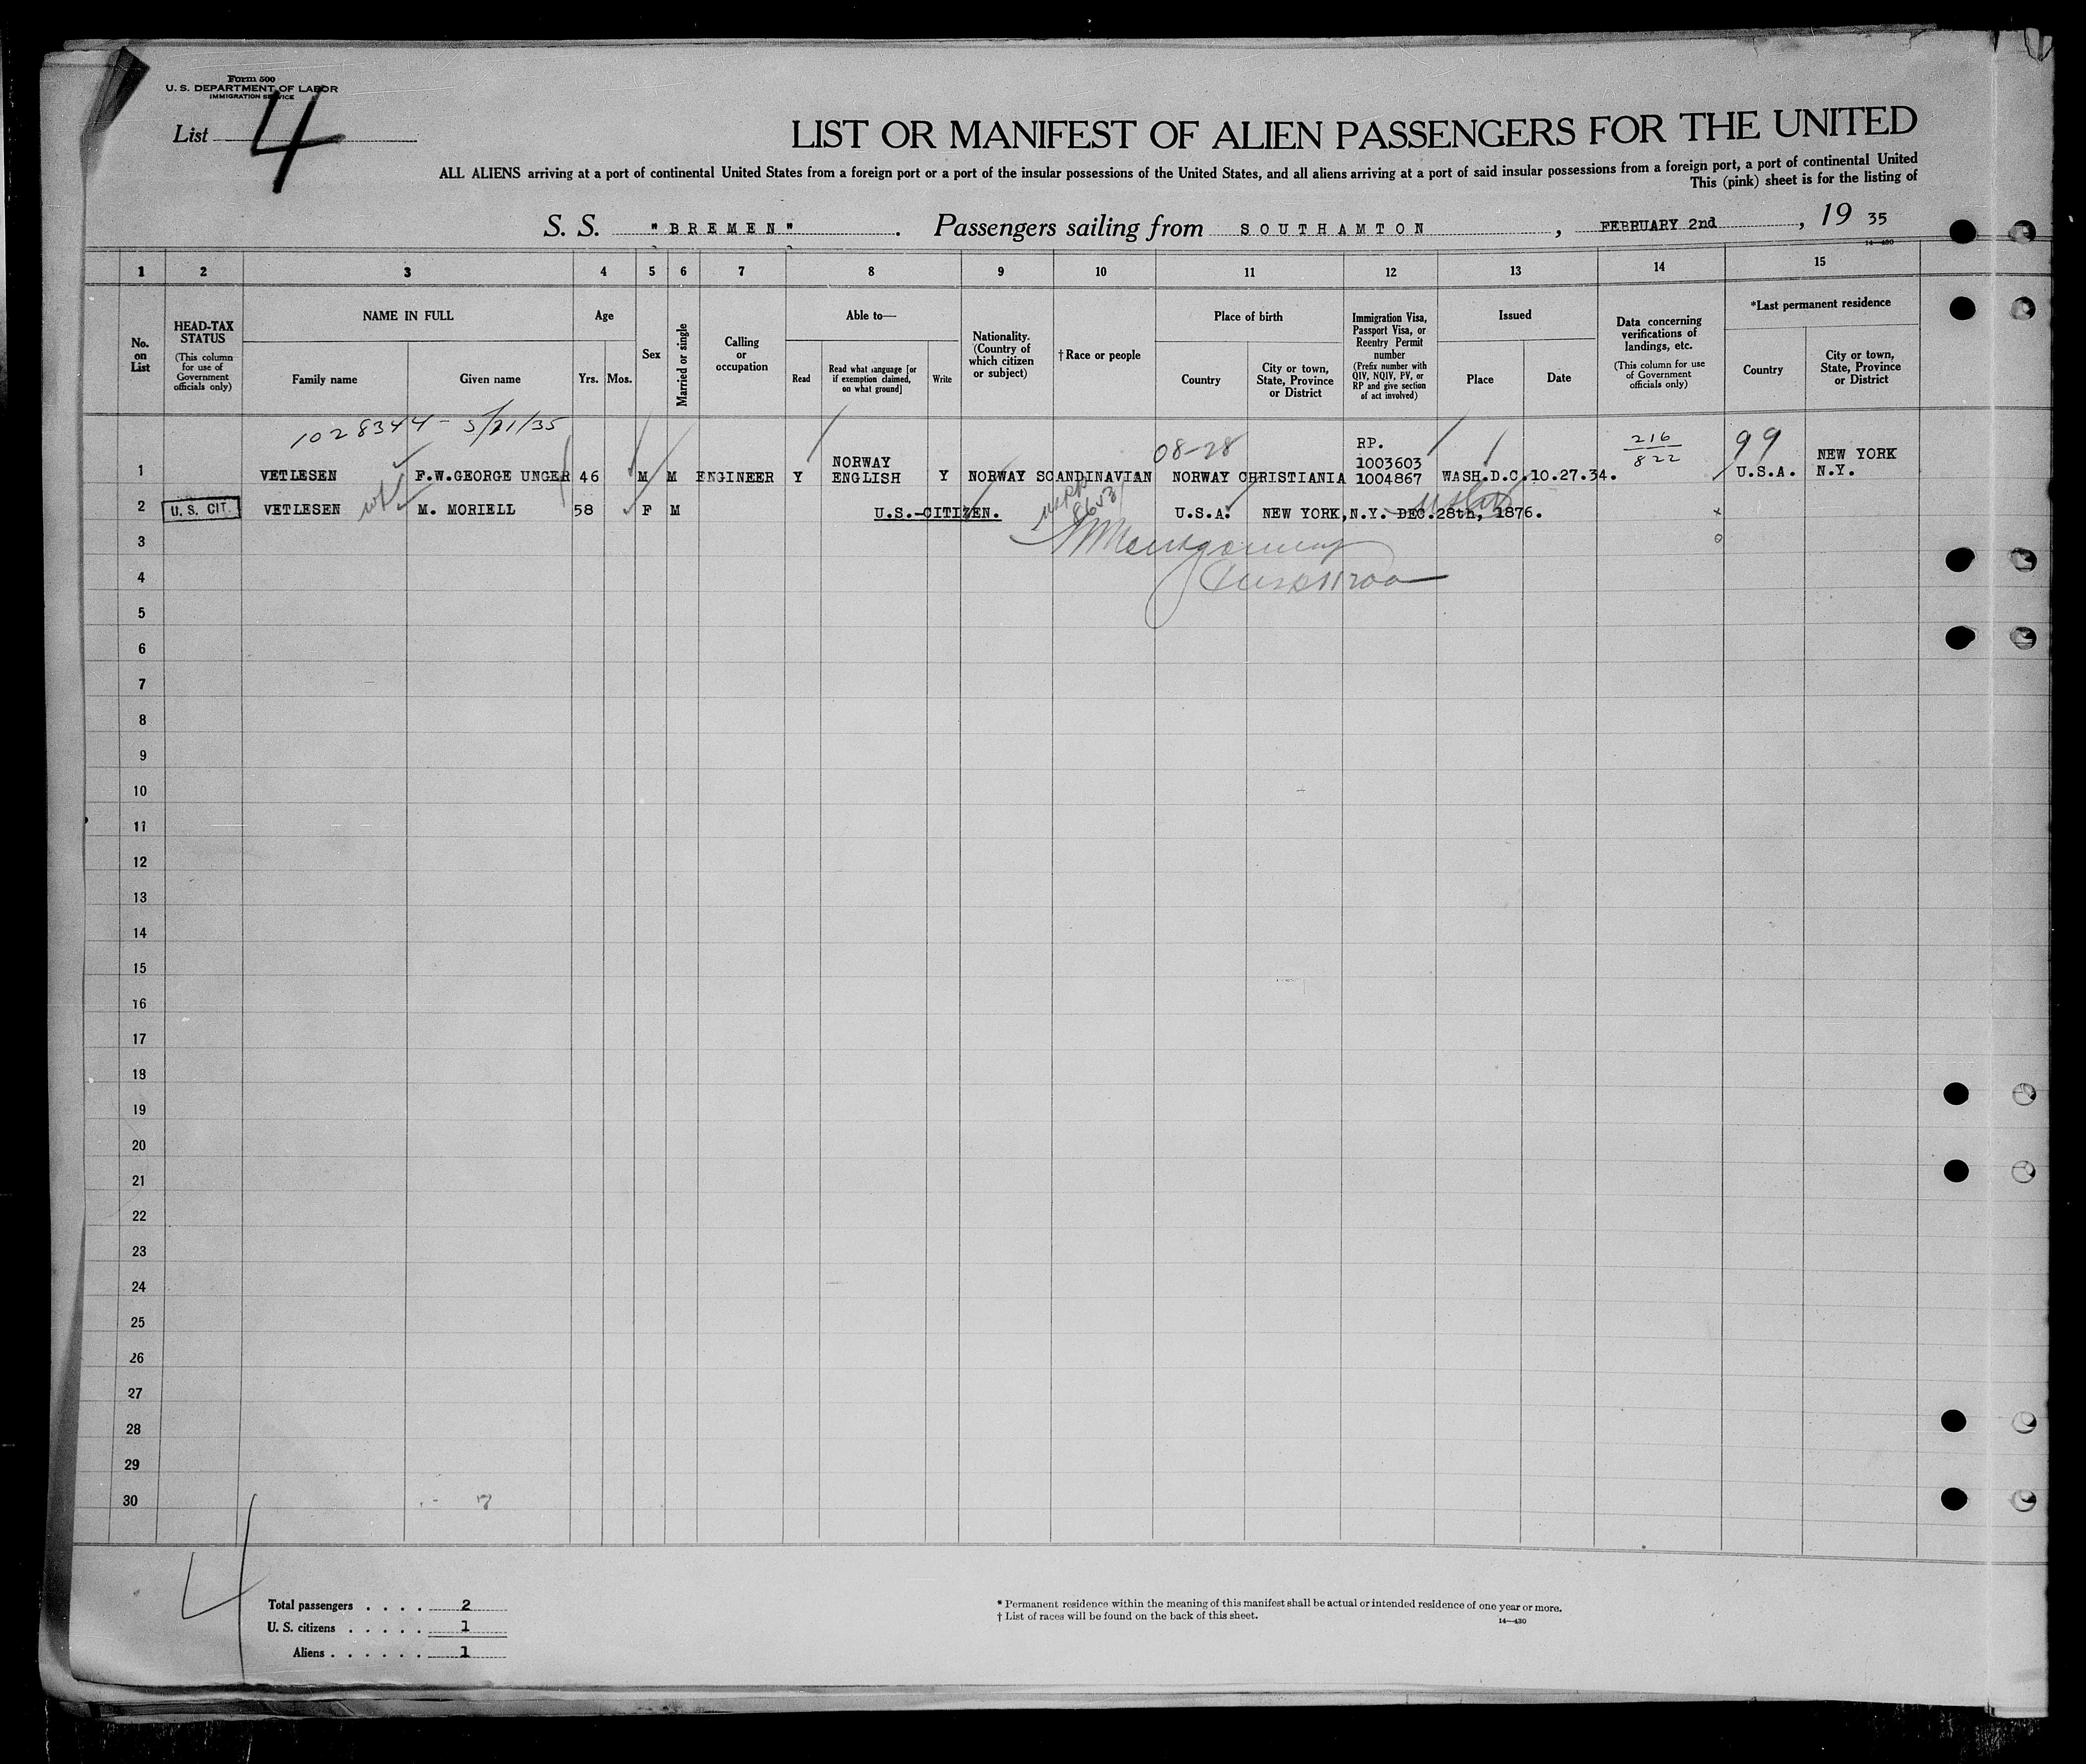 Form 500
U. S. DEPARTMENT OF LABOR
IMMIGRATION SERVICE
List 4
LIST OR MANIFEST OF ALIEN PASSENGERS FOR THE UNITED
ALL ALIENS arriving at a port of continental United States from a foreign port or a port of the insular possessions of the United States, and all aliens arriving at a port of said insular possessions from a foreign port, a port of continental United
This (pink) sheet is for the listing of
S. S. "BREMEN" . Passengers sailing from SOUTHAMTON , FEBRUARY 2nd , 19 35
14—430
1 2 3 4 5 6 7 8 9 10 11 12 13 14 15
No. on List
HEAD-TAX STATUS
(This column for use of Government officials only)
NAME IN FULL
Family name
Given name
Age
Yrs. Mos.
Sex
Married or single
Calling or occupation
Able to—
Read
Read what language [or if exemption claimed, on what ground]
Write
Nationality. (Country of which citizen or subject)
† Race or people
Place of birth
Country
City or town, State, Province or District
Immigration Visa, Passport Visa, or Reentry Permit number
(Prefix number with QIV, NQIV, PV, or RP and give section of act involved)
Issued
Place
Date
Data concerning verifications of landings, etc.
(This column for use of Government officials only)
*Last permanent residence
Country
City or town, State, Province or District
1028344 - 5/21/35
08-28
216
822
99
1 VETLESEN F.W.GEORGE UNGER 46 M M ENGINEER Y NORWAY ENGLISH Y NORWAY SCANDINAVIAN NORWAY CHRISTIANIA RP. 1003603 1004867 WASH.D.C. 10.27.34. U.S.A. NEW YORK N.Y.
2 U. S. CIT. VETLESEN M. MORIELL 58 F M U.S.-CITIZEN. U.S.A. NEW YORK,N.Y. DEC.28th, 1876.
Montgomery
3
4
5
6
7
8
9
10
11
12
13
14
15
16
17
18
19
20
21
22
23
24
25
26
27
28
29
30
Total passengers . . . . 2
U. S. citizens . . . . . 1
Aliens . . . . . . 1
* Permanent residence within the meaning of this manifest shall be actual or intended residence of one year or more.
† List of races will be found on the back of this sheet.
14—430